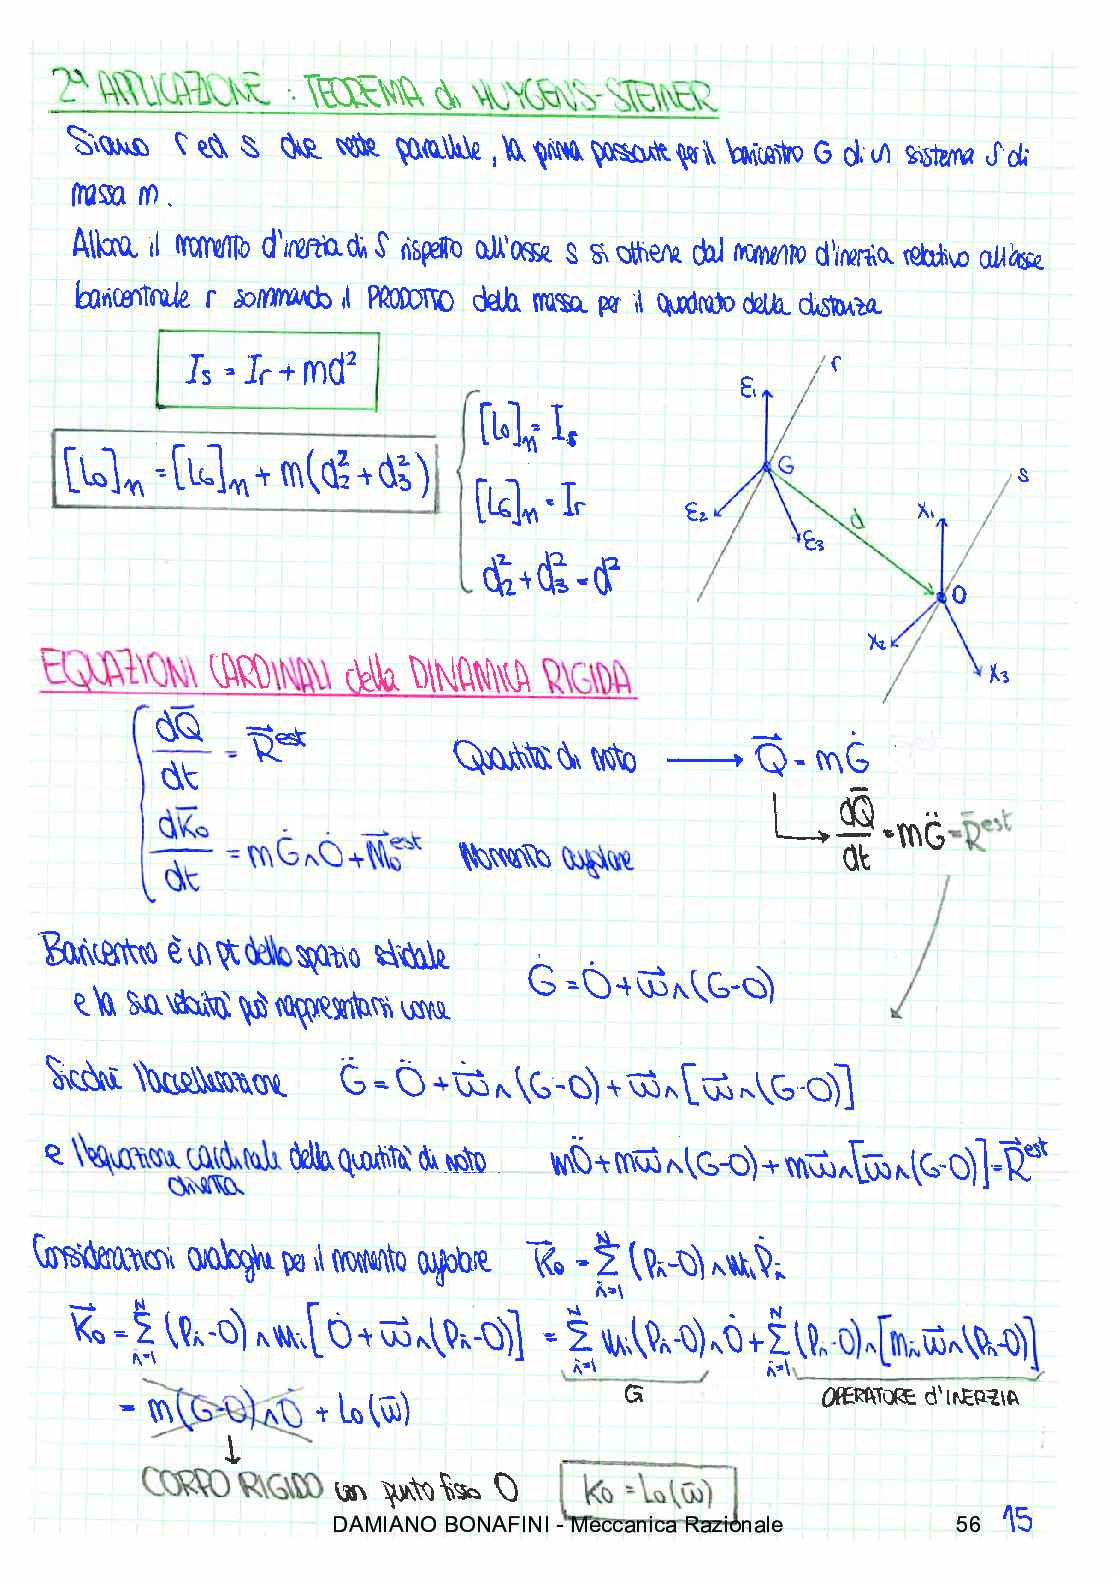 2ª APPLICAZIONE : TEOREMA di HUYGENS-STEINER
Siano r ed s due rette parallele, la prima passante per il baricentro G di un sistema S di
massa m.
Allora il momento d'inerzia di S rispetto all'asse s si ottiene dal momento d'inerzia relativo all'asse
baricentrale r sommando il PRODOTTO della massa per il quadrato della distanza
Is = Ir + md²
[Lo]₁₁ = [LG]₁₁ + m(d₂² + d₃²)
[Lo]₁₁ = Is
[LG]₁₁ = Ir
d₂² + d₃² = d²
r
ε₁
G
ε₂
ε₃
d
s
x₁
O
x₂
x₃
EQUAZIONI CARDINALI della DINAMICA RIGIDA
dQ̄/dt = R⃗ᵉˢᵗ Quantità di moto → Q⃗ = mĠ
↳ dQ̄/dt = mG̈ = R⃗ᵉˢᵗ
dK̄o/dt = mĠ∧Ȯ + M⃗oᵉˢᵗ Momento angolare
Baricentro è un pt dello spazio solidale
e la sua velocità può rappresentarsi come
Ġ = Ȯ + ω⃗∧(G-O)
Sicché l'accellerazione G̈ = Ö + ω̇∧(G-O) + ω⃗∧[ω⃗∧(G-O)]
e l'equazione cardinale della quantità di moto mÖ + mω̇∧(G-O) + mω⃗∧[ω⃗∧(G-O)] = R⃗ᵉˢᵗ
diventa
Considerazioni analoghe per il momento angolare K⃗o = Σᵢ₌₁ᴺ (Pᵢ-O)∧mᵢṖᵢ
K⃗o = Σᵢ₌₁ᴺ (Pᵢ-O)∧mᵢ[Ȯ + ω⃗∧(Pᵢ-O)] = Σᵢ₌₁ᴺ mᵢ(Pᵢ-O)∧Ȯ + Σᵢ₌₁ᴺ (Pᵢ-O)∧[mᵢω⃗∧(Pᵢ-O)]
G
OPERATORE d'INERZIA
= m(G-O)∧Ȯ + Lo(ω̄)
↓
CORPO RIGIDO con punto fisso O
Ko = Lo(ω̄)
DAMIANO BONAFINI - Meccanica Razionale
56
15